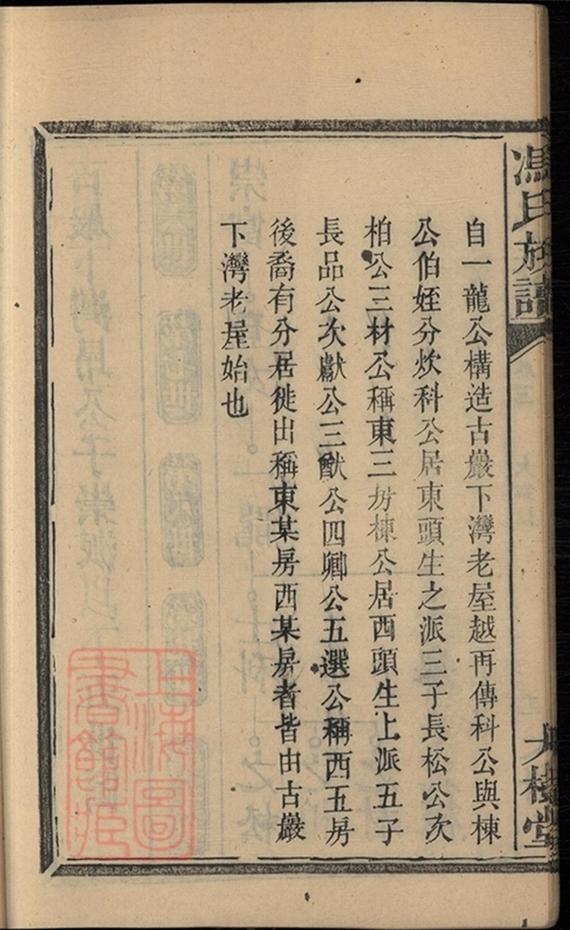 馮氏族譜
大樹堂
自一龍公構造古巖下灣老屋越再傳科公與棟
公伯姪分炊科公居東頭生之派三子長松公次
柏公三材公稱東三房棟公居西頭生上派五子
長品公次獻公三猷公四卿公五選公稱西五房
後裔有分居徙出稱東某房西某房者皆由古巖
下灣老屋始也
上海圖
書館藏